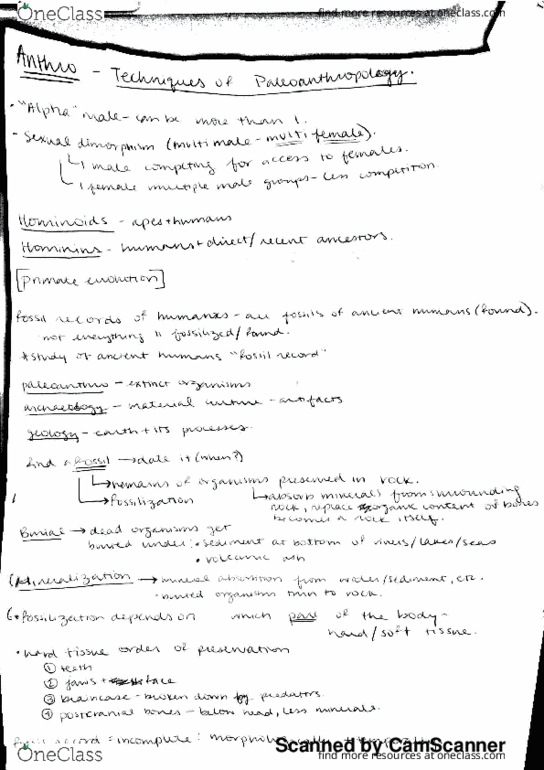 OneClass
find more resources at oneclass.com
Anthro - Techniques of Paleoanthropology.
• "Alpha" male - can be more than 1.
• Sexual dimorphism (multimale - multi female).
1 male competing for access to females.
1 female multiple male groups - less competition
Hominoids - apes + humans
Hominins - humans + direct/recent ancestors.
[Primate evolution]
fossil records of humans - all fossils of ancient humans (found).
not everything is fossilized/found.
* study of ancient humans "fossil record"
paleoanthro - extinct organisms
archaeology - material culture - artifacts
geology - earth + its processes.
find a fossil → date it (when?)
→ remains of organisms preserved in rock.
→ fossilization
→ absorb minerals from surrounding
rock, replace organic content of bones
becomes a rock itself.
Burial → dead organisms get
buried under: • sediment at bottom of rivers/lakes/seas
• volcanic ash
Mineralization → mineral absorption from water/sediment, etc.
• buried organisms turn to rock.
• Fossilization depends on which part of the body -
hard/soft tissue.
• hard tissue order of preservation
① teeth
② jaws + face
③ braincase - broken down by predators.
④ postcranial bones - below head, less minerals.
record = incomplete:
Scanned by CamScanner
OneClass
find more resources at oneclass.com